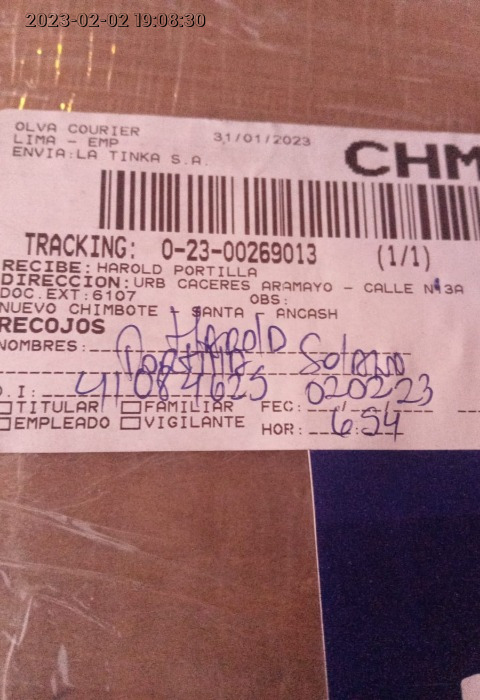 2023-02-02 19:08:30
OLVA COURIER
LIMA - EMP
31/01/2023
ENVIA:LA TINKA S.A.
CHM
TRACKING: 0-23-00269013 (1/1)
RECIBE: HAROLD PORTILLA
DIRECCION: URB CACERES ARAMAYO - CALLE N 3A
DOC.EXT:6107 OBS:
NUEVO CHIMBOTE - SANTA - ANCASH
RECOJOS
Harold
NOMBRES: Portilla Solano
D.I: 41084625 020223
TITULAR FAMILIAR FEC:
EMPLEADO VIGILANTE HOR: 6:54